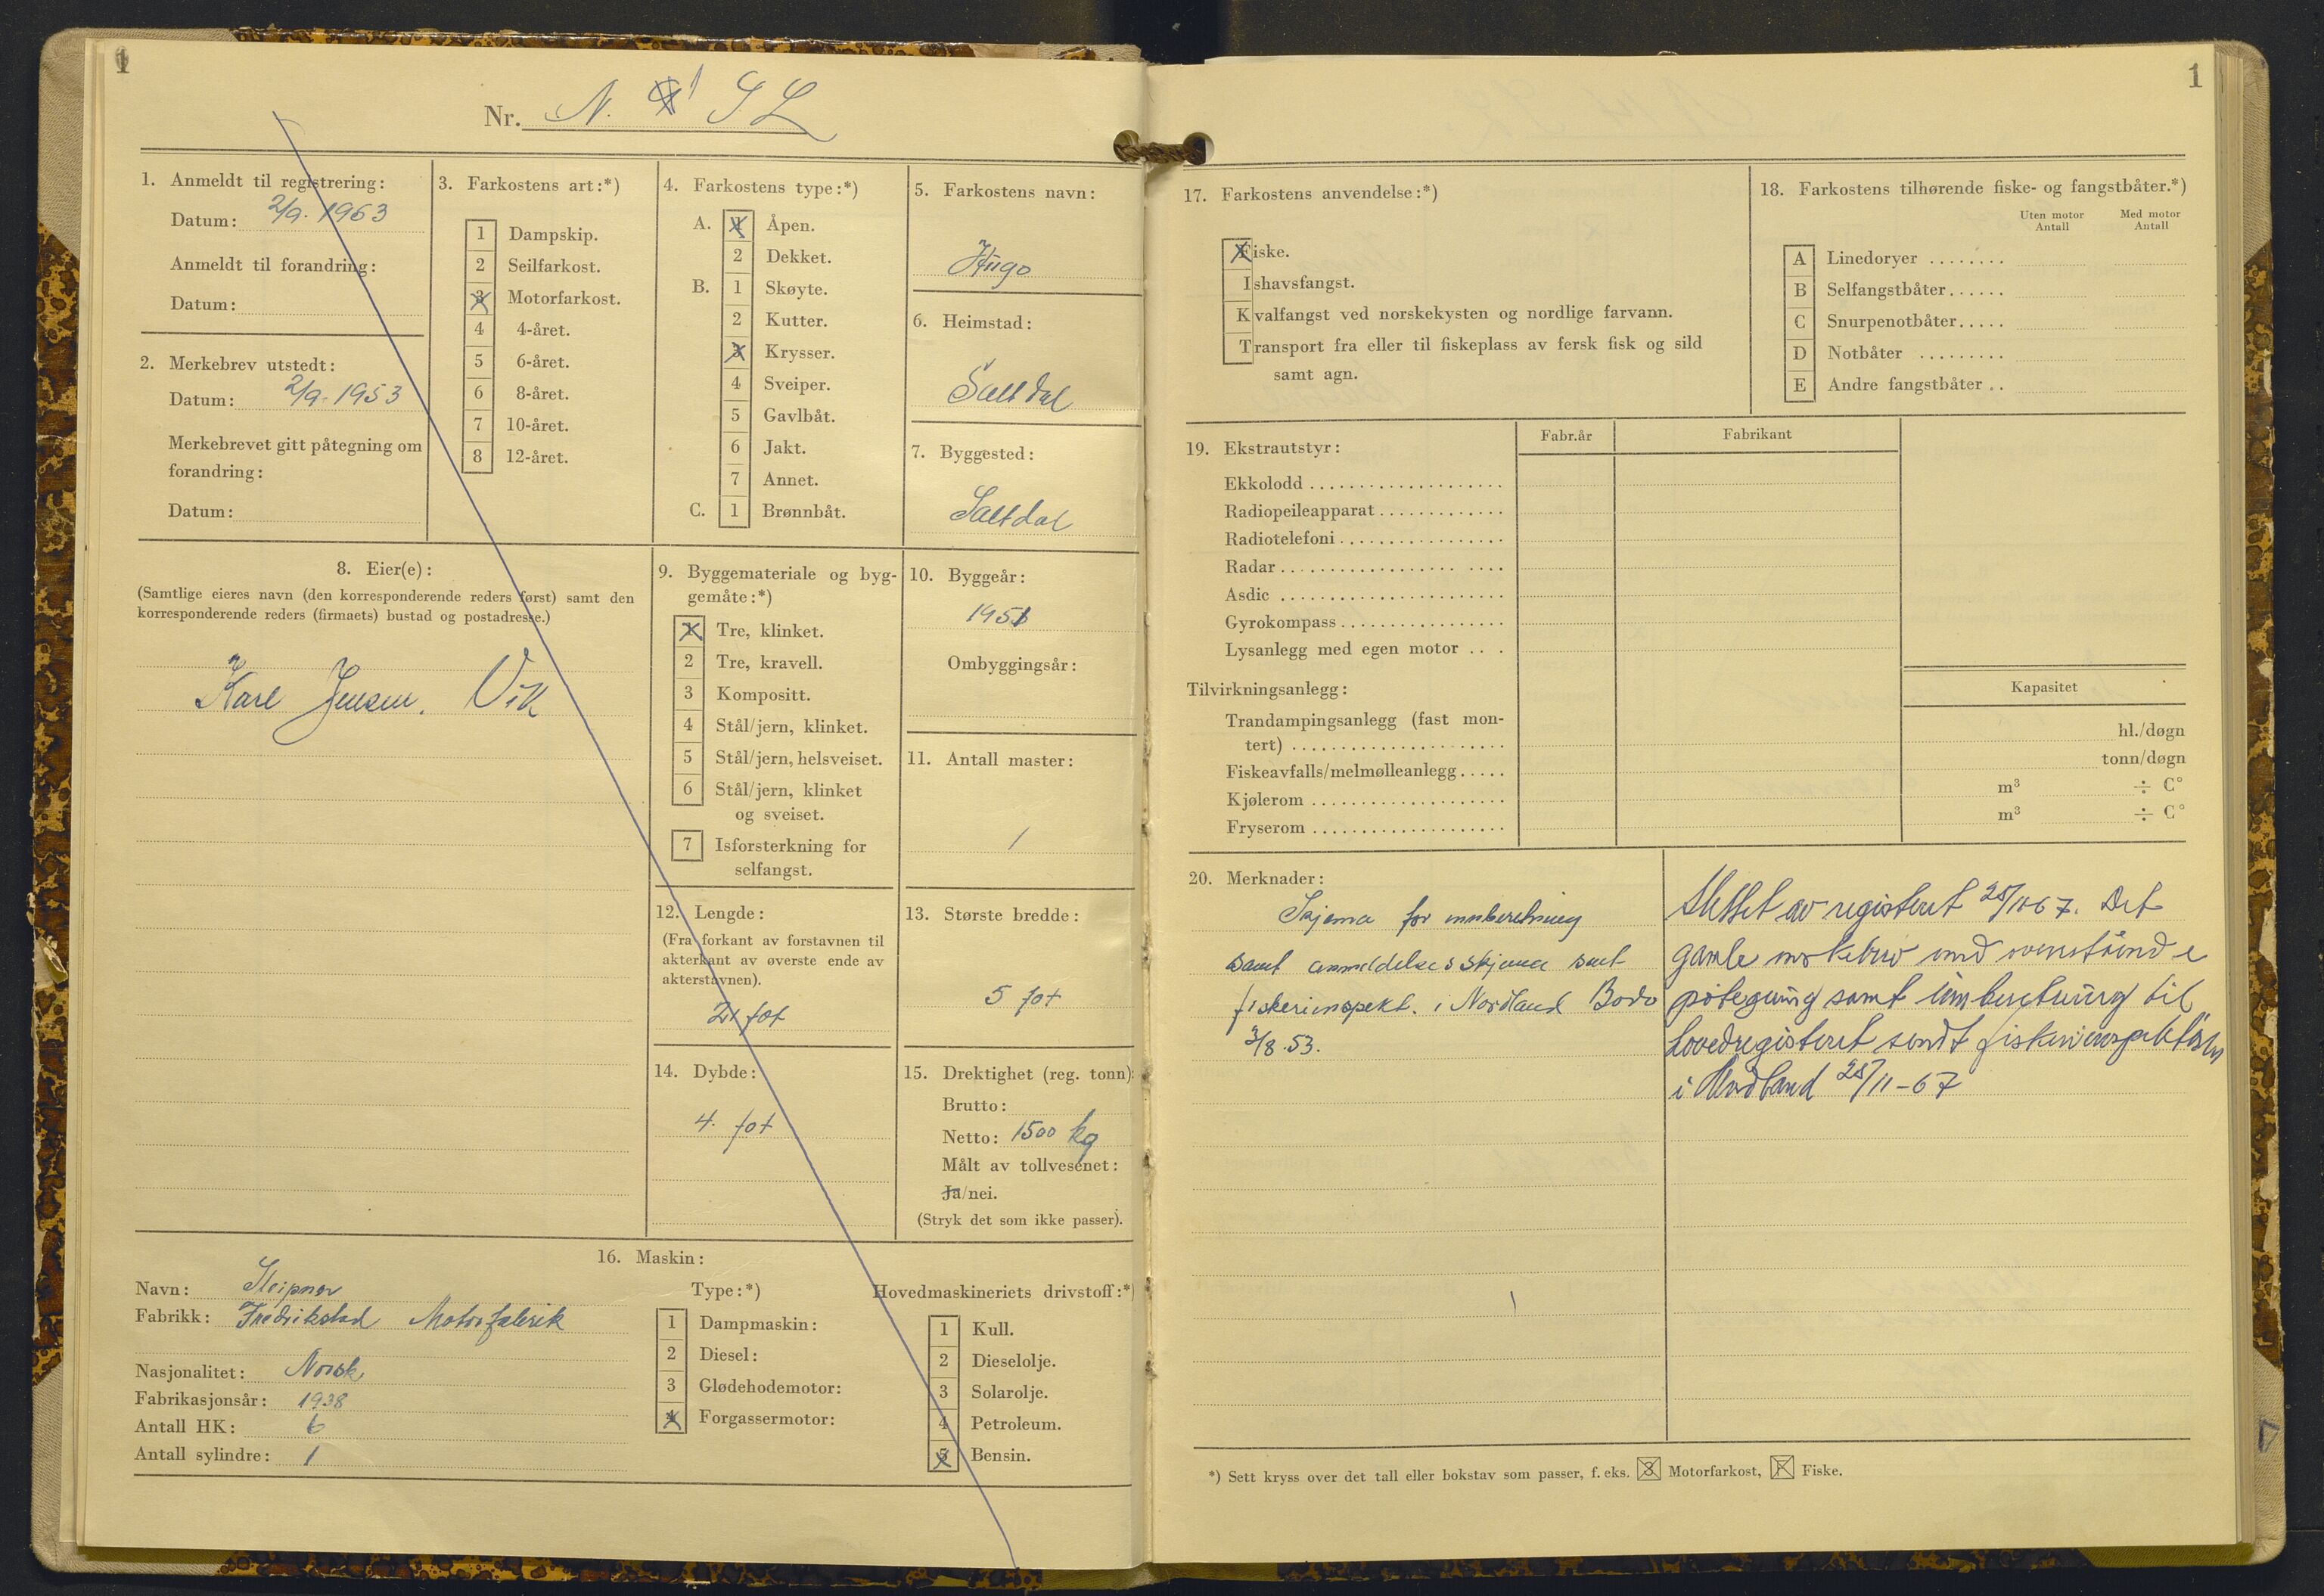 1
Nr. N. 1 SL
1. Anmeldt til registrering:
Datum: 2/9. 1953
Anmeldt til forandring:
Datum:
2. Merkebrev utstedt:
Datum: 2/9-1953
Merkebrevet gitt påtegning om
forandring:
Datum:
3. Farkostens art:*)
1 Dampskip.
2 Seilfarkost.
3 Motorfarkost.
4 4-året.
5 6-året.
6 8-året.
7 10-året.
8 12-året.
4. Farkostens type:*)
A. 1 Åpen.
2 Dekket.
B. 1 Skøyte.
2 Kutter.
3 Krysser.
4 Sveiper.
5 Gavlbåt.
6 Jakt.
7 Annet.
C. 1 Brønnbåt.
5. Farkostens navn:
Hugo
6. Heimstad:
Saltdal
7. Byggested:
Saltdal
8. Eier(e):
(Samtlige eieres navn (den korresponderende reders først) samt den
korresponderende reders (firmaets) bustad og postadresse.)
Karl Jensen. Vik
9. Byggemateriale og byg-
gemåte:*)
1 Tre, klinket.
2 Tre, kravell.
3 Kompositt.
4 Stål/jern, klinket.
5 Stål/jern, helsveiset.
6 Stål/jern, klinket
og sveiset.
7 Isforsterkning for
selfangst.
10. Byggeår:
1951
Ombyggingsår:
11. Antall master:
1
12. Lengde:
(Fra forkant av forstavnen til
akterkant av øverste ende av
akterstavnen).
21 fot
13. Største bredde:
5 fot
14. Dybde:
4. fot
15. Drektighet (reg. tonn):
Brutto:
Netto: 1500 kg
Målt av tollvesenet:
Ja/nei.
(Stryk det som ikke passer).
16. Maskin:
Navn: Sleipner
Fabrikk: Fredrikstad Motorfabrik
Nasjonalitet: Norsk
Fabrikasjonsår: 1938
Antall HK: 6
Antall sylindre: 1
Type:*)
1 Dampmaskin:
2 Diesel:
3 Glødehodemotor:
4 Forgassermotor:
Hovedmaskineriets drivstoff:*)
1 Kull.
2 Dieselolje.
3 Solarolje.
4 Petroleum.
5 Bensin.
1
17. Farkostens anvendelse:*)
Fiske.
Ishavsfangst.
Kvalfangst ved norskekysten og nordlige farvann.
Transport fra eller til fiskeplass av fersk fisk og sild
samt agn.
18. Farkostens tilhørende fiske- og fangstbåter.*)
Uten motor Antall
Med motor Antall
A Linedoryer ........
B Selfangstbåter......
C Snurpenotbåter.....
D Notbåter .........
E Andre fangstbåter ..
19. Ekstrautstyr:
Fabr.år
Fabrikant
Ekkolodd ....................
Radiopeileapparat.............
Radiotelefoni.................
Radar.................. ....
Asdic .......................
Gyrokompass.................
Lysanlegg med egen motor ...
Tilvirkningsanlegg:
Kapasitet
Trandampingsanlegg (fast mon-
tert) ......................
hl./døgn
Fiskeavfalls/melmølleanlegg.....
tonn/døgn
Kjølerom ....................
m³ ÷ C°
Fryserom ....................
m³ ÷ C°
20. Merknader:
Skjema for innberetning
samt anmeldelsesskjema sent
fiskeriinspekt. i Nordland Bodø
3/8.53.
Slettet av registeret 25/11-67. Det
gamle merkebrev med ovenstående
påtegning samt innberetning til
hovedregisteret sendt fiskeriinspektøren
i Nordland 25/11-67
*) Sett kryss over det tall eller bokstav som passer, f. eks. 3 Motorfarkost, F Fiske.